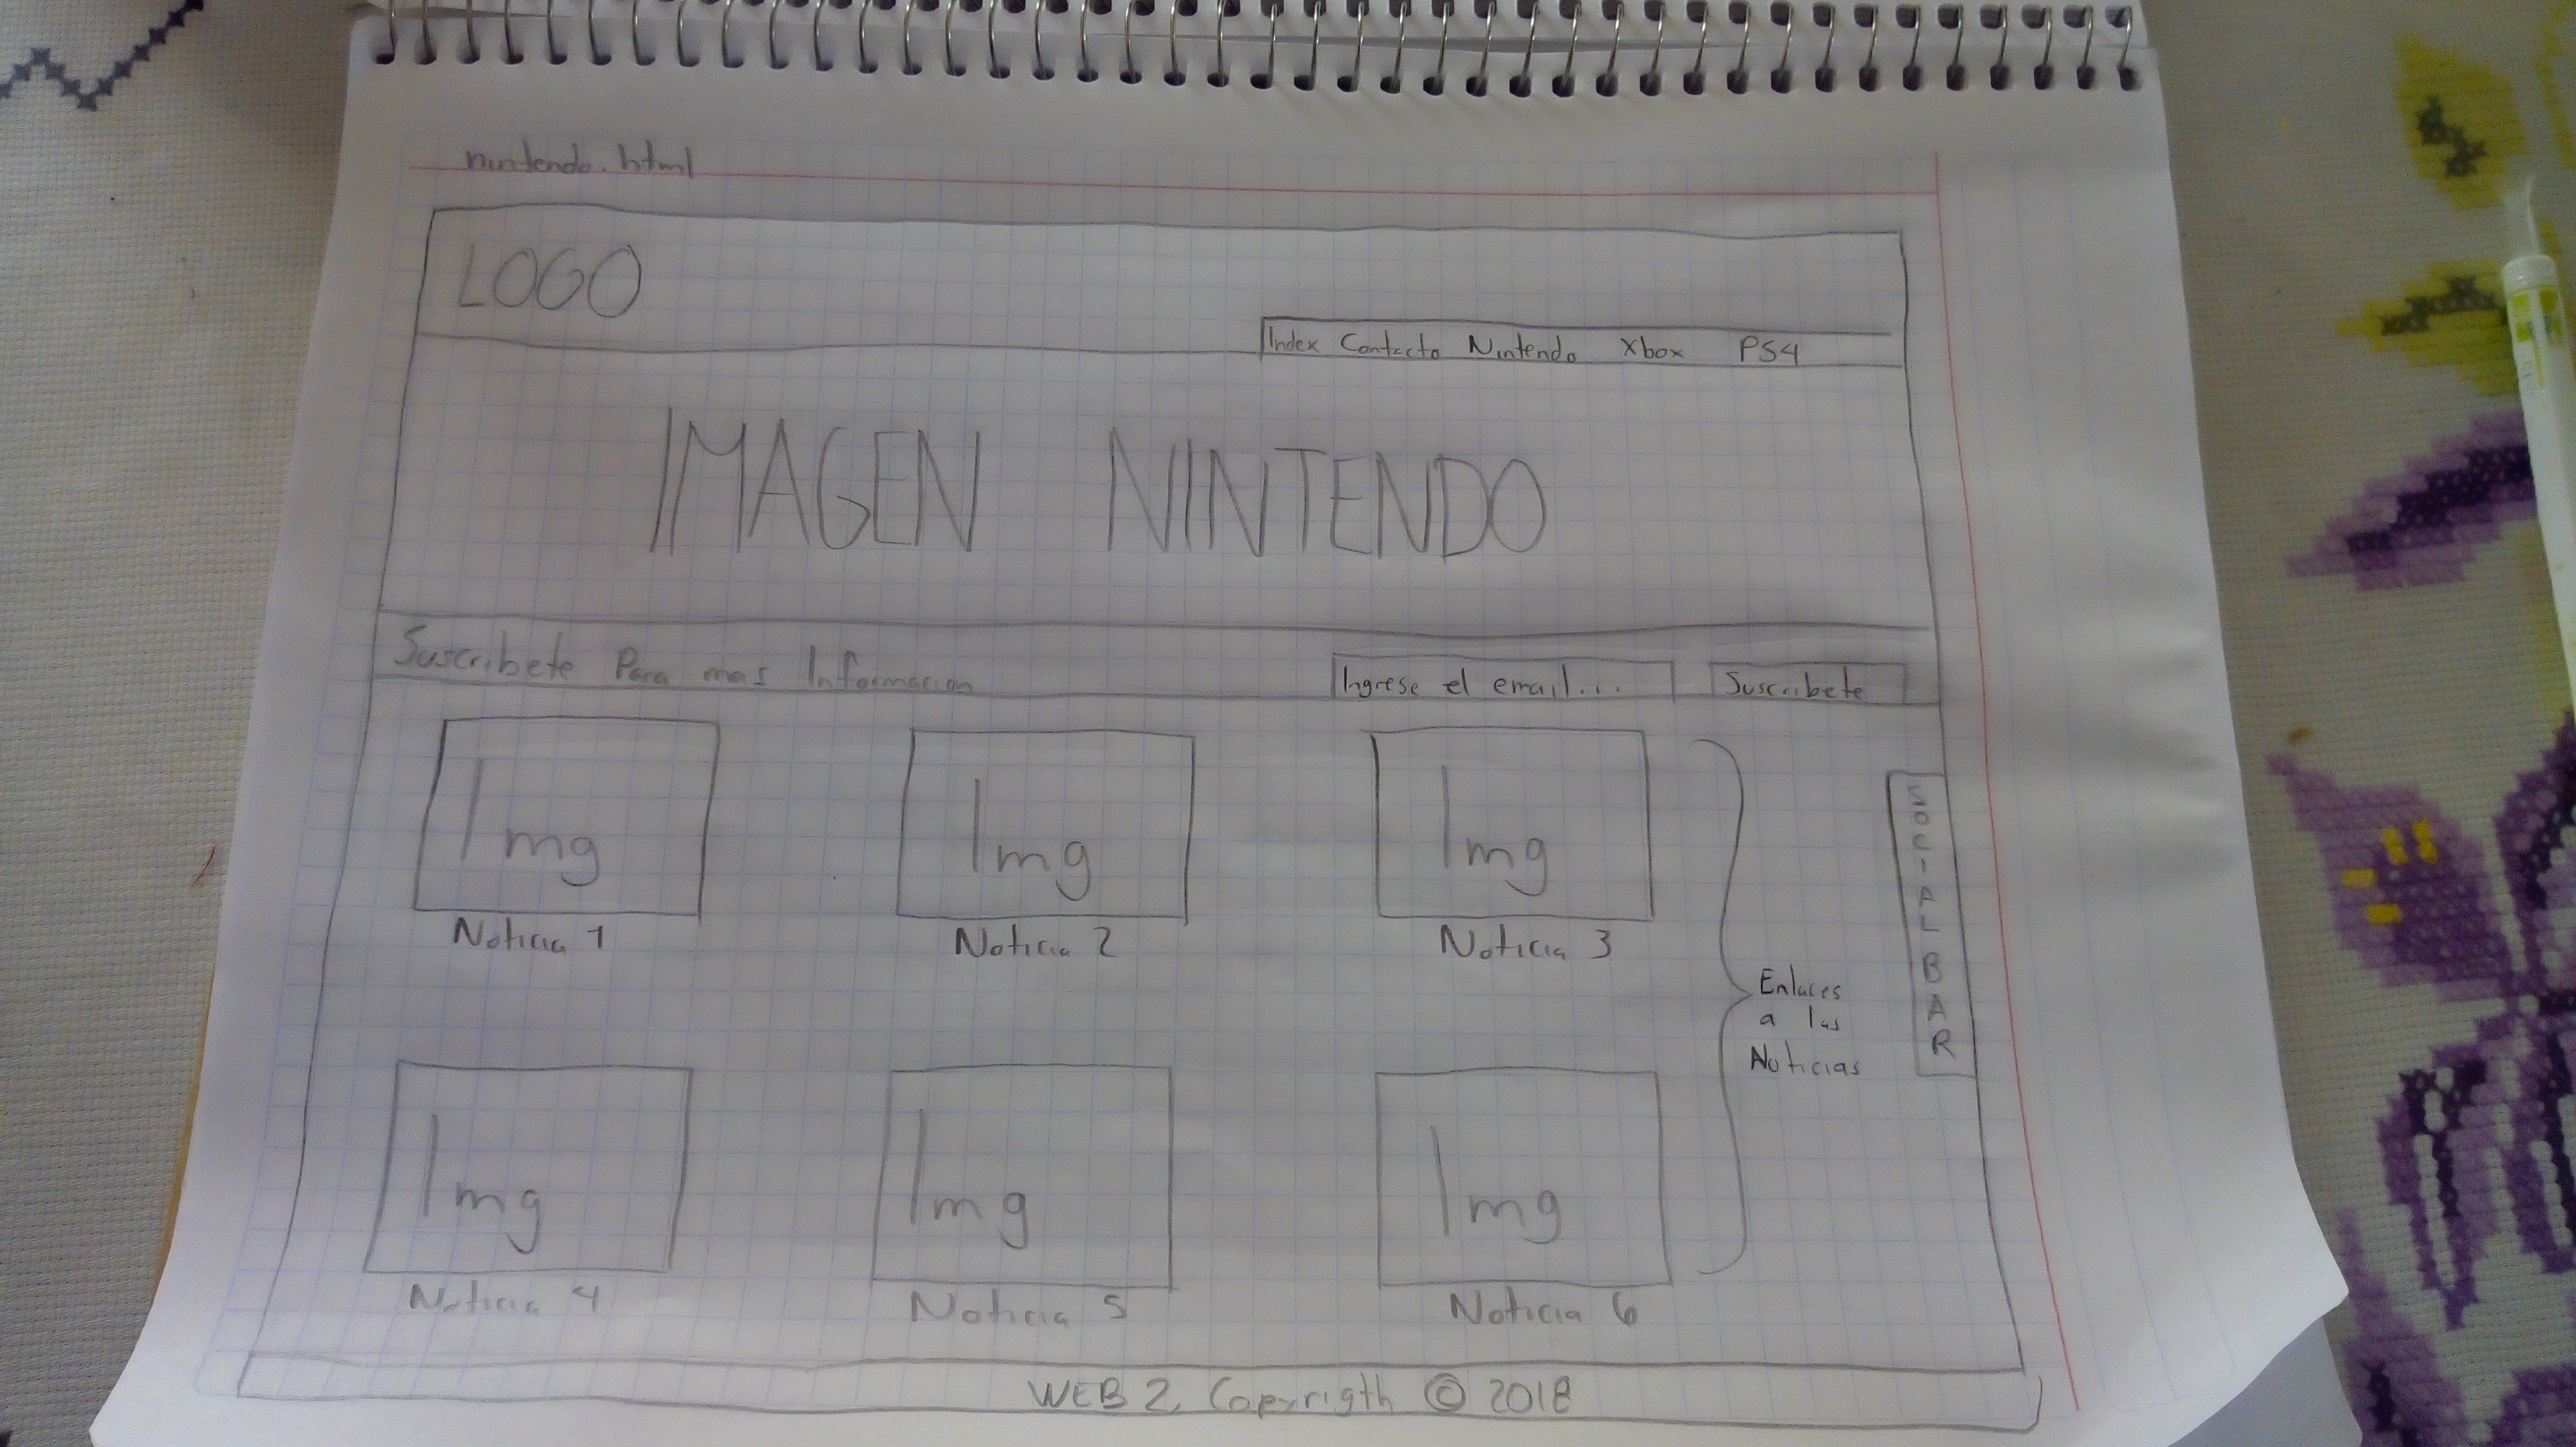 nintendo.html
LOGO
Index Contacto Nintendo Xbox PS4
IMAGEN NINTENDO
Suscribete Para mas Informacion
Ingrese el email... Suscribete
Img Img Img
Noticia 1 Noticia 2 Noticia 3
SOCIAL BAR
Enlaces
a las
Noticias
Img Img Img
Noticia 4 Noticia 5 Noticia 6
WEB 2, Copyrigth © 2018